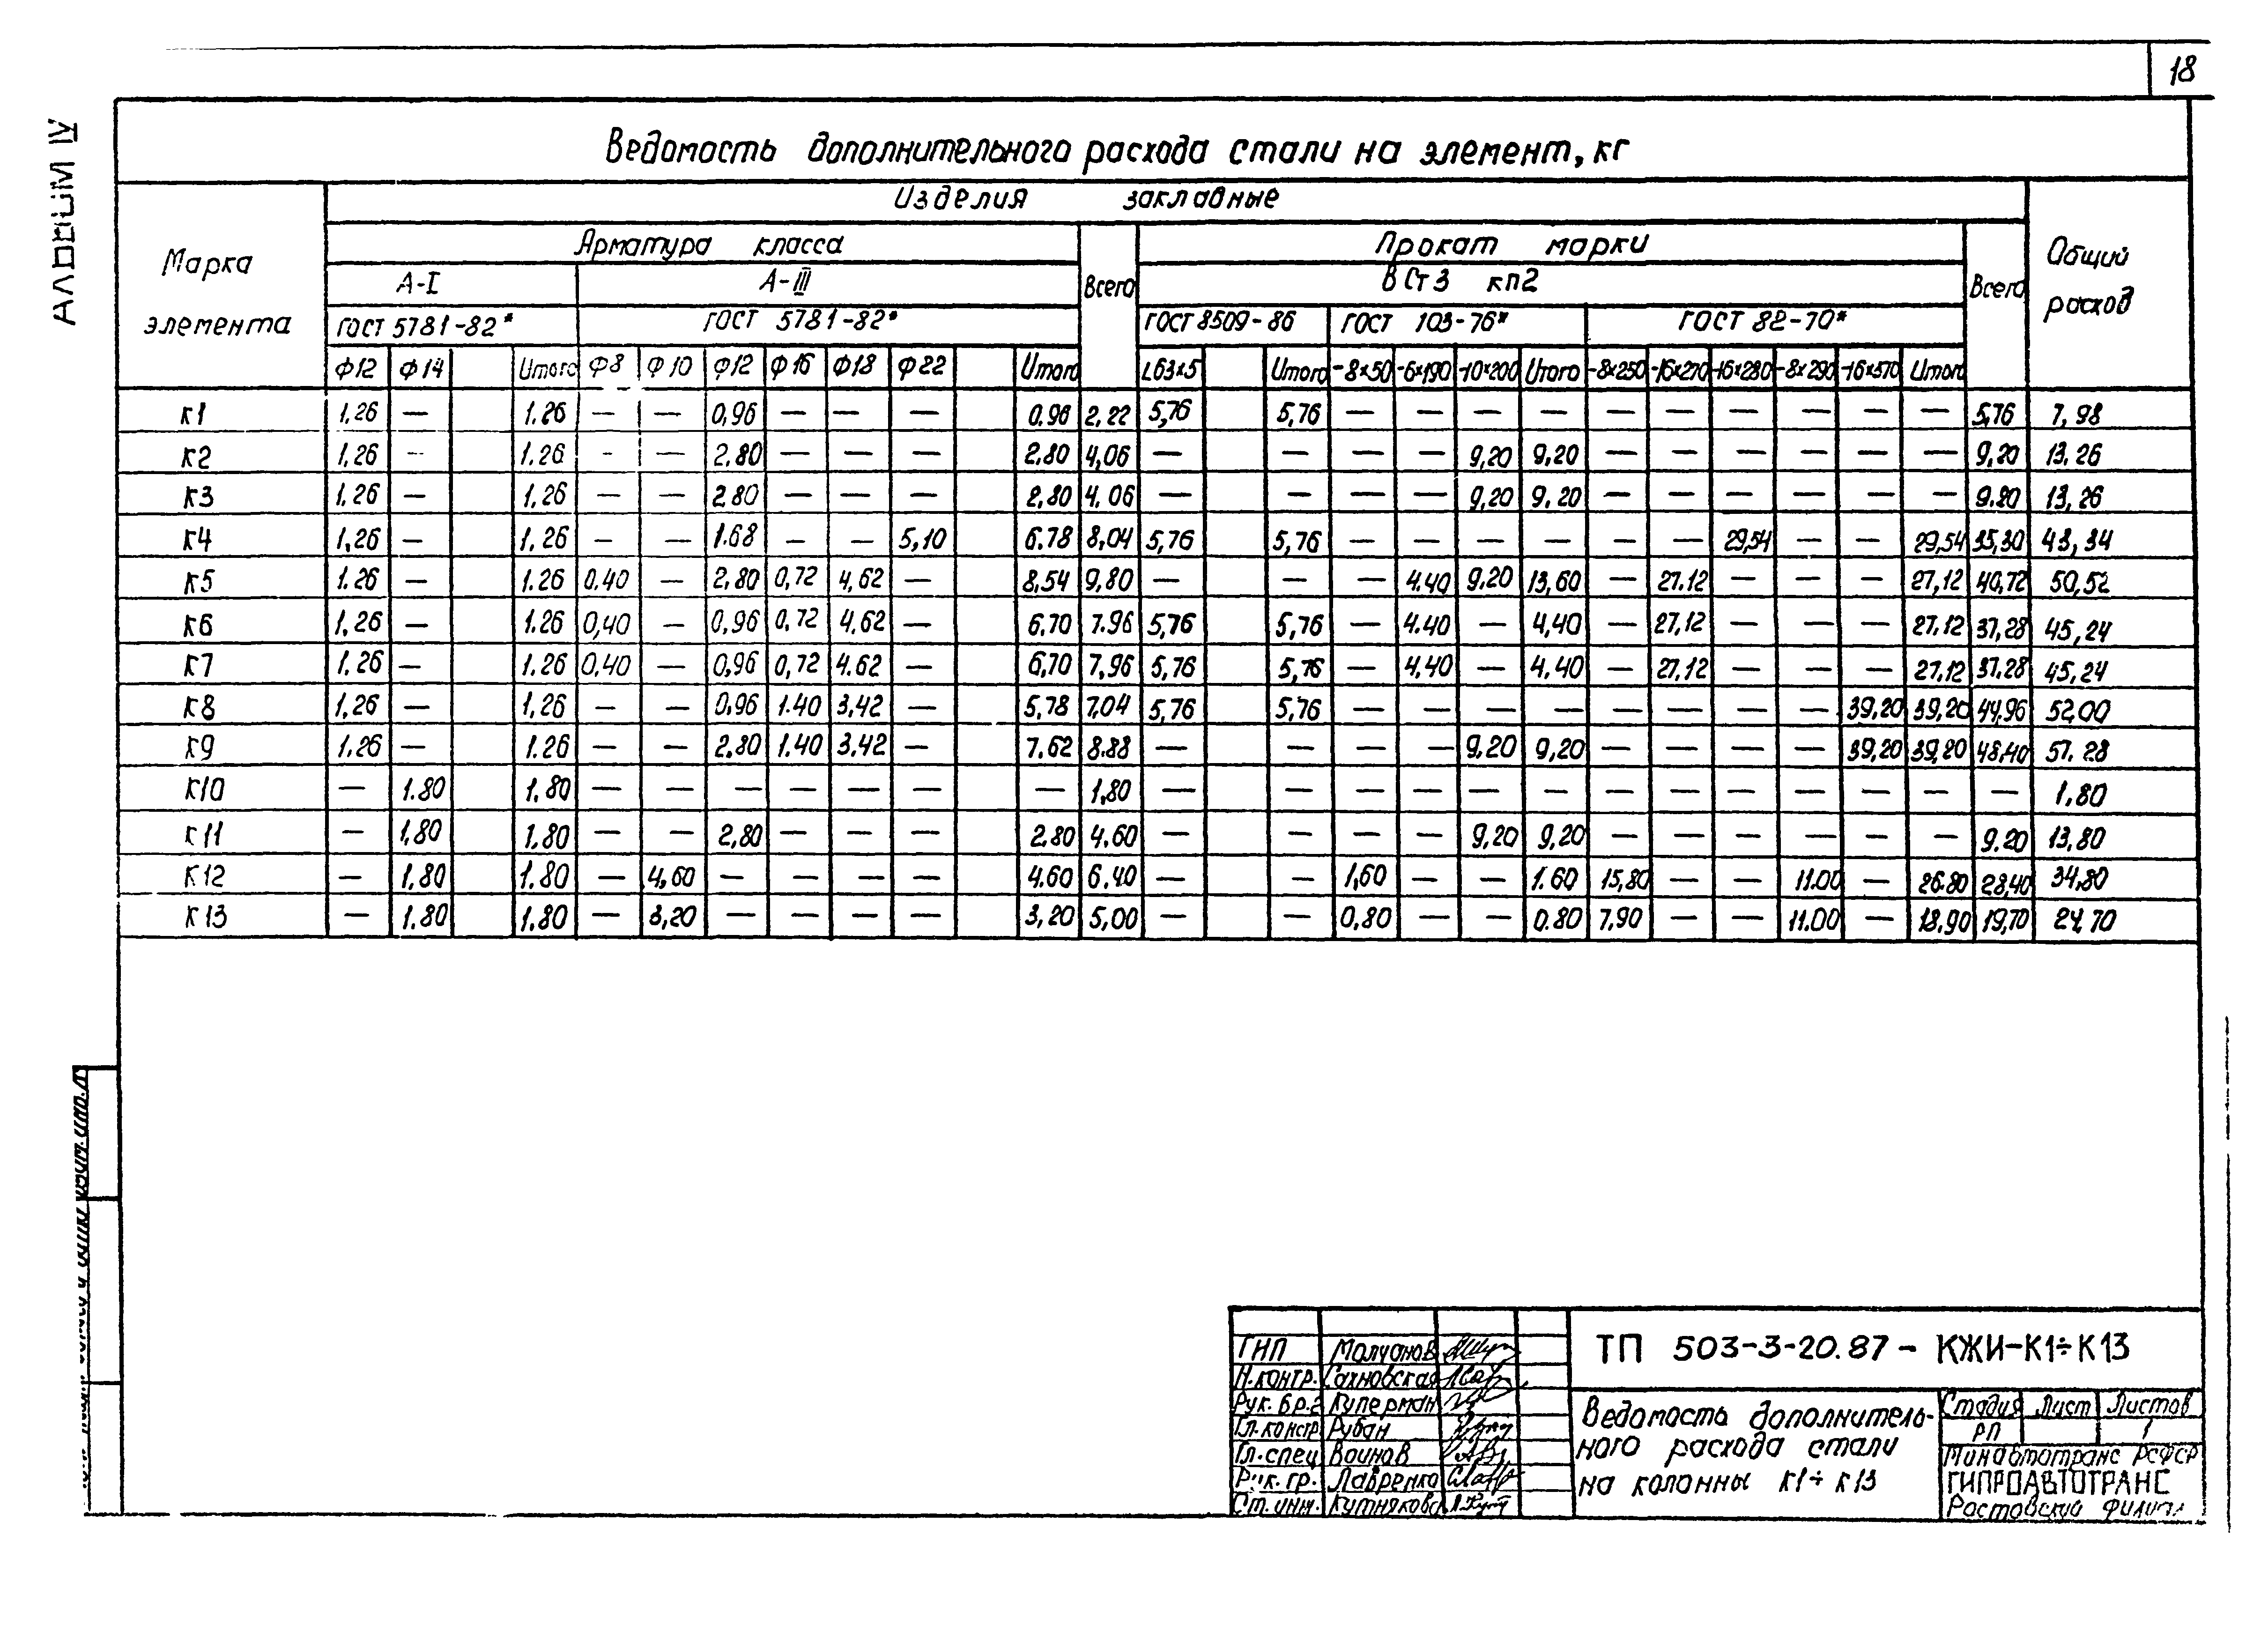 18
Альбом IV
Ведомость дополнительного расхода стали на элемент, кг
Марка элемента
Изделия закладные
Общий расход
Арматура класса
Всего
Прокат марки
Всего
А-I
А-III
ВСт3 кп2
ГОСТ 5781-82*
ГОСТ 5781-82*
ГОСТ 8509-86
ГОСТ 103-76*
ГОСТ 82-70*
Ф12 Ф14 Итого Ф8 Ф10 Ф12 Ф16 Ф18 Ф22 Итого L63х5 Итого -8х50 -6х190 -10х200 Итого -8х250 -16х270 -16х280 -8х290 -16х570 Итого
К1 1,26 — 1.26 — — 0,96 — — — 0,96 2,22 5,76 5,76 — — — — — — — — — — 5,76 7,98
К2 1,26 — 1.26 - — 2,80 — — — 2,80 4,06 — — — — 9,20 9,20 — — — — — — 9,20 13.26
К3 1,26 — 1,26 — — 2,80 — — — 2,80 4.06 — — — — 9,20 9,20 — — — — — — 9.20 13,26
К4 1,26 — 1,26 — — 1.68 — — 5,10 6.78 8,04 5,76 5,76 — — — — — — 29,54 — — 29,54 35,30 43,34
К5 1.26 — 1.26 0,40 — 2,80 0,72 4,62 — 8,54 9,80 — — — 4.40 9,20 13,60 — 27.12 — — — 27,12 40,72 50,52
К6 1,26 — 1.26 0,40 — 0,96 0,72 4,62 — 6.70 7.96 5,76 5,76 — 4.40 — 4,40 — 27,12 — — — 27.12 37,28 45,24
К7 1.26 — 1.26 0,40 — 0,96 0,72 4.62 — 6,70 7,96 5,76 5,76 — 4,40 — 4,40 — 27,12 — — — 27,12 37.28 45,24
К8 1,26 — 1,26 — — 0,96 1.40 3,42 — 5,78 7,04 5,76 5,76 — — — — — — — — 39,20 39,20 44,96 52,00
К9 1.26 — 1.26 — — 2,80 1.40 3.42 — 7.62 8.88 — — — — 9,20 9,20 — — — — 39,20 39,20 48,40 57.28
К10 — 1.80 1,80 — — — — — — — 1,80 — — — — — — — — — — — — — 1,80
К11 — 1,80 1,80 — — 2,80 — — — 2.80 4,60 — — — — 9,20 9,20 — — — — — — 9.20 13,80
К12 — 1,80 1.80 — 4,60 — — — — 4.60 6.40 — — 1,60 — — 1.60 15,80 — — 11.00 — 26.80 28,40 34,80
К13 — 1.80 1,80 — 3,20 — — — — 3,20 5,00 — — 0,80 — — 0.80 7,90 — — 11.00 — 18.90 19,70 24,70
ГИП Молчанов
Н.контр. Сахновская
Рук. бр.г Куперман
Гл.констр Рубан
Гл.спец Воинов
Рук. гр. Лавренко
Ст. инж. Кутнякова
ТП 503-3-20.87 - КЖИ-К1÷К13
Ведомость дополнитель-
ного расхода стали
на колонны К1÷К13
Стадия Лист Листов
РП 1
Минавтотранс РСФСР
ГИПРОАВТОТРАНС
Ростовский филиал